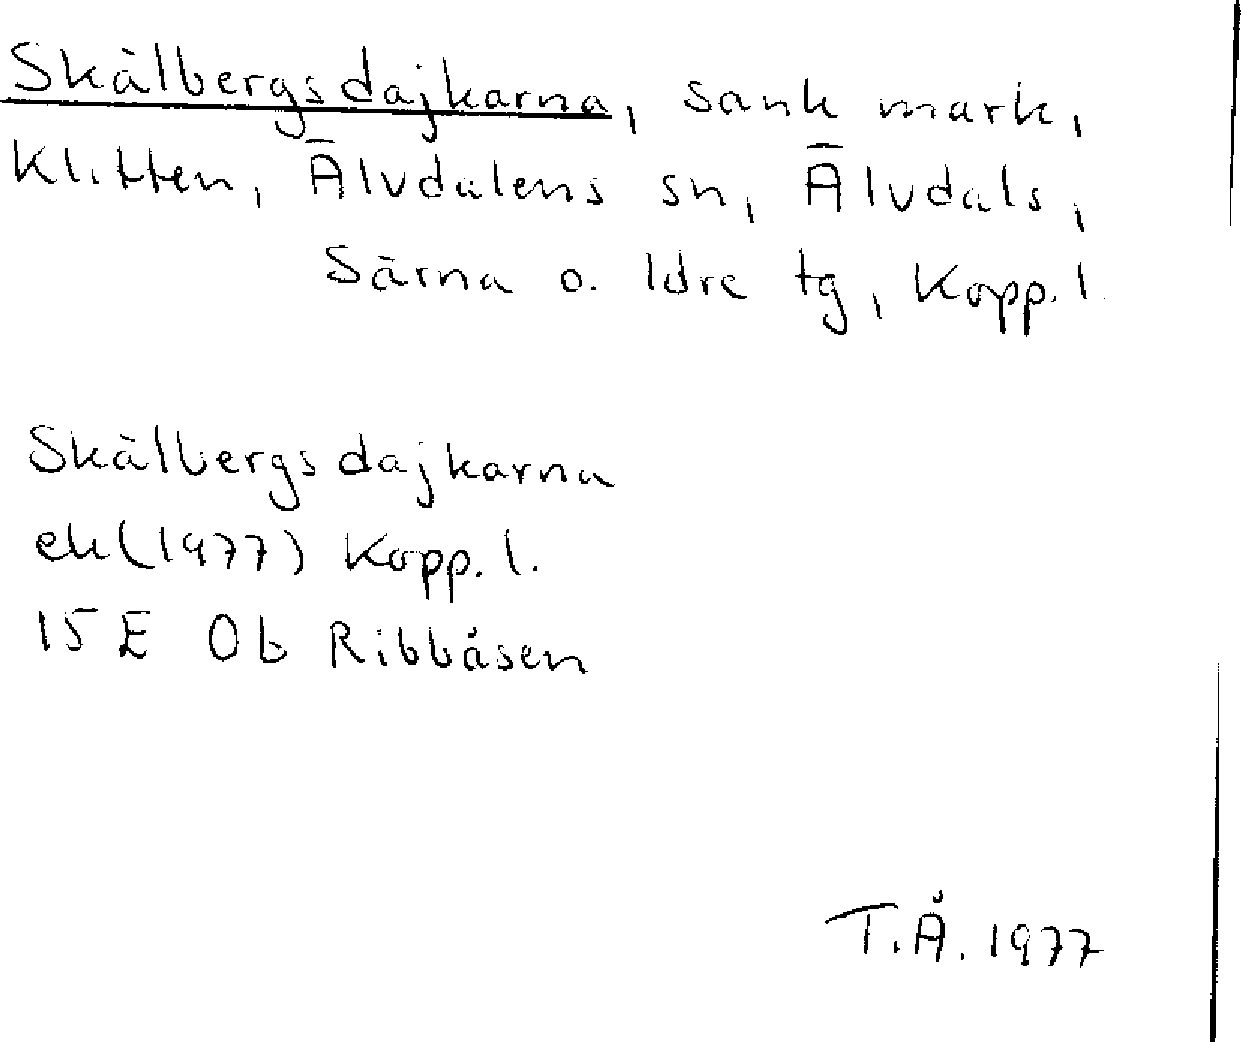 Skälbergsdajkarna, sank mark,
Klitten, Älvdalens sn, Älvdals,
Särna o. Idre tg, Kopp. l
Skälbergsdajkarna
ek (1977) Kopp. l.
15 E 0b Ribbåsen
T.Å. 1977